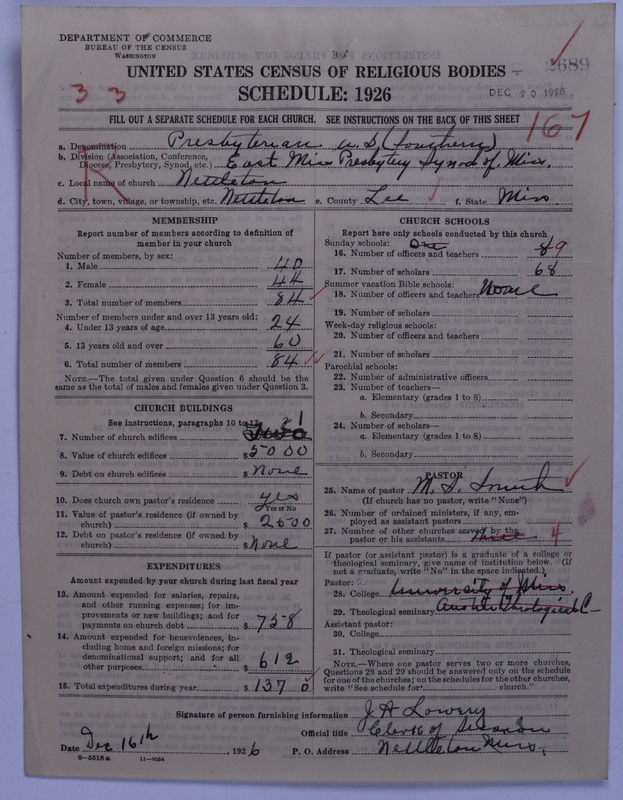 DEPARTMENT OF COMMERCE
BUREAU OF THE CENSUS
WASHINGTON
2689
UNITED STATES CENSUS OF RELIGIOUS BODIES
SCHEDULE: 1926
DEC 20 1926
3 3
FILL OUT A SEPARATE SCHEDULE FOR EACH CHURCH. SEE INSTRUCTIONS ON THE BACK OF THIS SHEET
167
a. Denomination Presbyterian U.S. (Southern)
b. Division (Association, Conference, Diocese, Presbytery, Synod, etc.) East Miss Presbytery Synod of Miss.
c. Local name of church Nettleton
d. City, town, village, or township, etc. Nettleton e. County Lee f. State Miss.
MEMBERSHIP
Report number of members according to definition of
member in your church
Number of members, by sex:
1. Male 40
2. Female 44
3. Total number of members 84
Number of members under and over 13 years old:
4. Under 13 years of age 24
5. 13 years old and over 60
6. Total number of members 84
NOTE.—The total given under Question 6 should be the
same as the total of males and females given under Question 3.
CHURCH BUILDINGS
See instructions, paragraphs 10 to 12
7. Number of church edifices 1
8. Value of church edifices $5000
9. Debt on church edifices $ None
10. Does church own pastor's residence yes
Yes or No
11. Value of pastor's residence (if owned by
church) $2000
12. Debt on pastor's residence (if owned by
church) $None
EXPENDITURES
Amount expended by your church during last fiscal year
13. Amount expended for salaries, repairs,
and other running expenses; for im-
provements or new buildings; and for
payments on church debt $ 758
14. Amount expended for benevolences, in-
cluding home and foreign missions; for
denominational support; and for all
other purposes $ 612
15. Total expenditures during year $ 1370
CHURCH SCHOOLS
Report here only schools conducted by this church
Sunday schools: One
16. Number of officers and teachers 9
17. Number of scholars 68
Summer vacation Bible schools:
18. Number of officers and teachers None
19. Number of scholars
Week-day religious schools:
20. Number of officers and teachers
21. Number of scholars
Parochial schools:
22. Number of administrative officers
23. Number of teachers—
a. Elementary (grades 1 to 8)
b. Secondary
24. Number of scholars—
a. Elementary (grades 1 to 8)
b. Secondary
PASTOR
25. Name of pastor M.
(If church has no pastor, write "None")
26. Number of ordained ministers, if any, em-
ployed as assistant pastors
27. Number of other churches served by the
pastor or his assistants Three 4
If pastor (or assistant pastor) is a graduate of a college or
theological seminary, give name of institution below. (If
not a graduate, write "No" in the space indicated.)
Pastor:
28. College University of Miss.
29. Theological seminary Austin Theological C
Assistant pastor:
30. College
31. Theological seminary
NOTE.—Where one pastor serves two or more churches,
Questions 28 and 29 should be answered only on the schedule
for one of the churches; on the schedules for the other churches,
write "See schedule for church."
Signature of person furnishing information J. A. Lowery
Official title Clerk of Session
Date Dec 16th, 1926 P. O. Address Nettleton Miss.
8—5518 a 11—9054